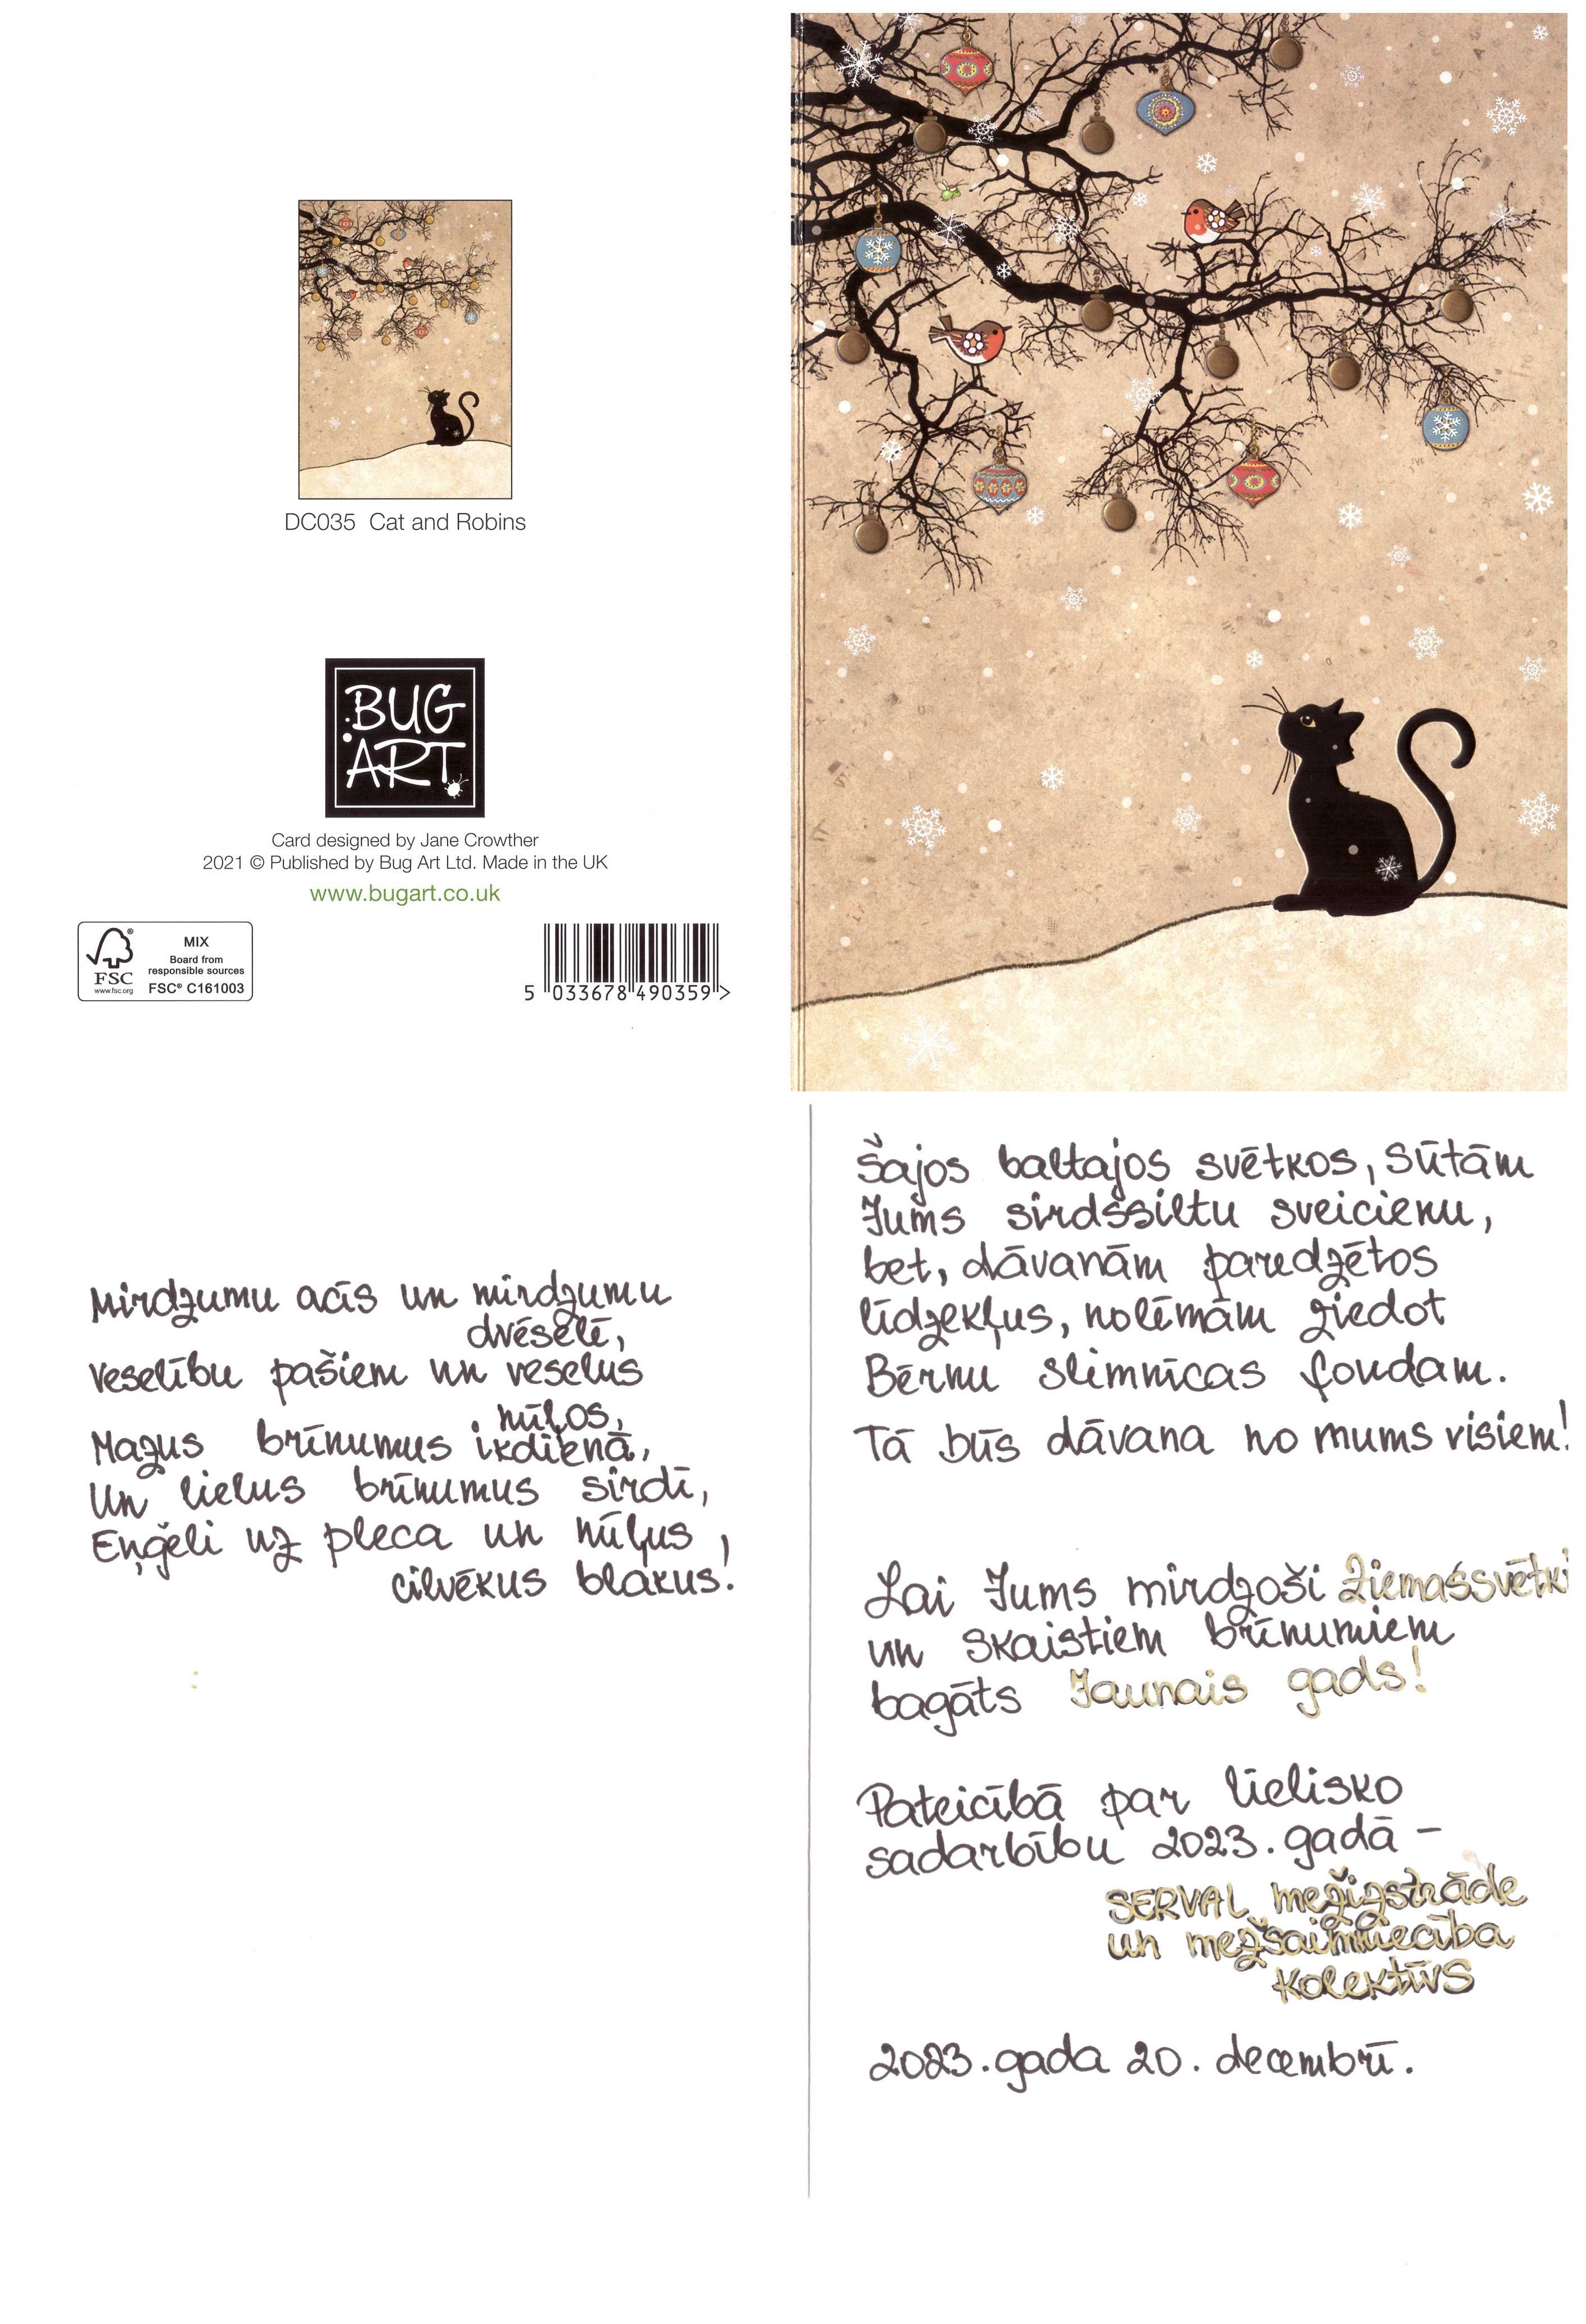 DC035  Cat and Robins
BUG
ART
Card designed by Jane Crowther
2021 © Published by Bug Art Ltd. Made in the UK
www.bugart.co.uk
FSC®
www.fsc.org
MIX
Board from
responsible sources
FSC® C161003
5 033678 490359 >
Mirdzumu acīs un mirdzumu
dvēselē,
Veselību pašiem un veselus
mīļos,
Mazus brīnumus ikdienā,
Un lielus brīnumus sirdī,
Eņģeli uz pleca un mīļus
cilvēkus blakus!
Šajos baltajos svētkos, sūtām
Jums sirdssiltu sveicienu,
bet, dāvanām paredzētos
līdzekļus, nolēmām ziedot
Bērnu slimnīcas fondam.
Tā būs dāvana no mums visiem!
Lai Jums mirdzoši Ziemassvētki
un skaistiem brīnumiem
bagāts Jaunais gads!
Pateicībā par lielisko
sadarbību 2023. gadā –
SERVAL mežizstrāde
un mežsaimniecība
kolektīvs
2023. gada 20. decembrī.